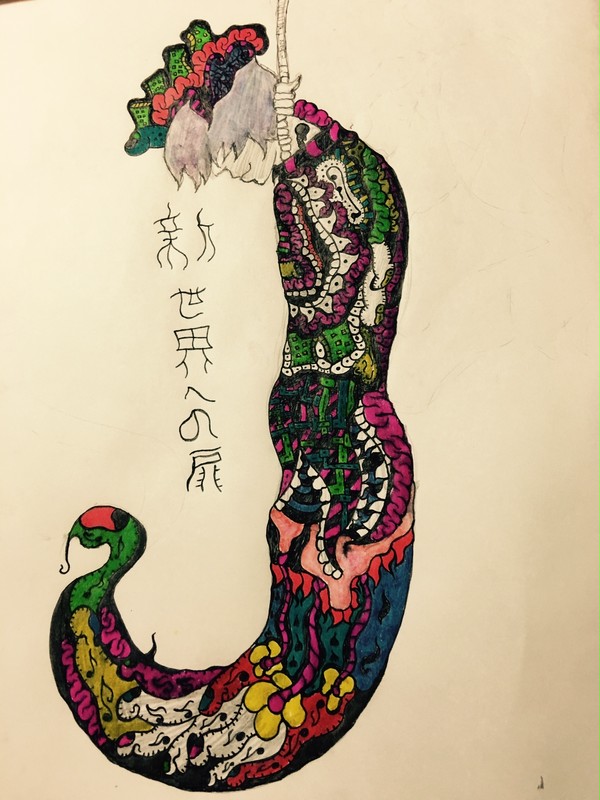 新世界への扉